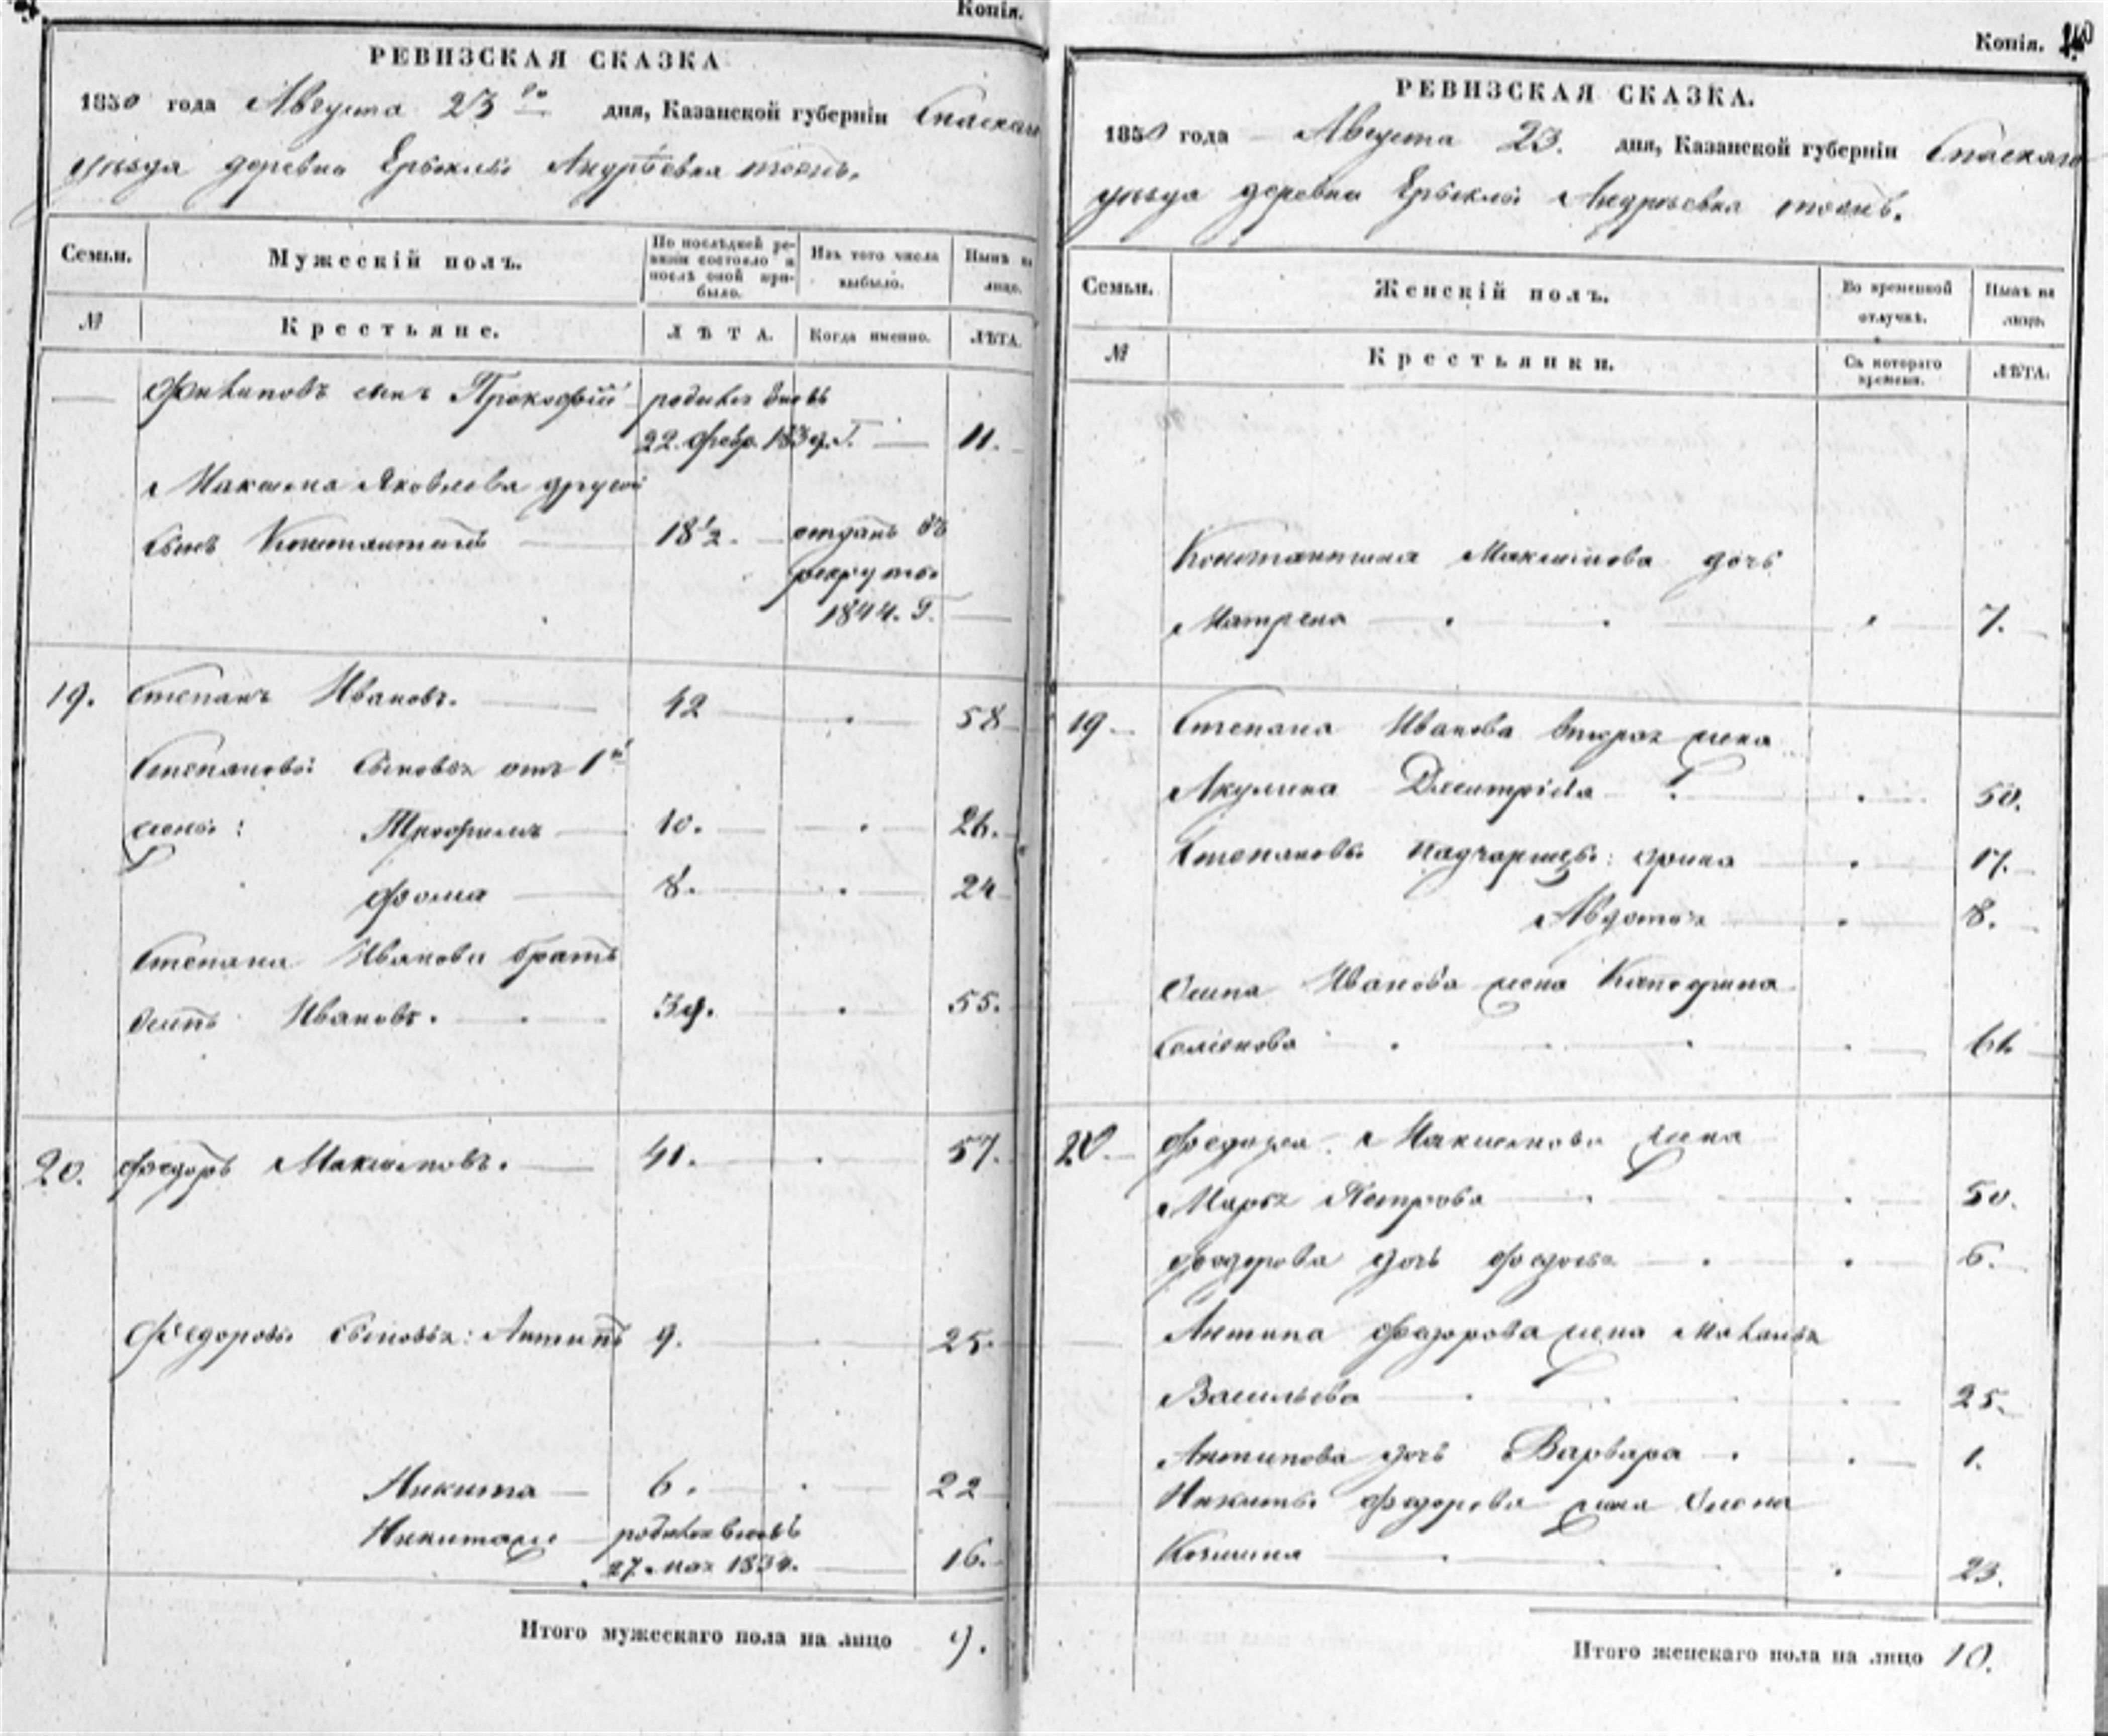 Копія.
РЕВИЗСКАЯ СКАЗКА
1850 года Августа 23го дня, Казанской губерніи Спаскаго
уѣзда деревни Ерыклы Андрѣевка тожъ.
Семьи. Мужескій полъ. По послѣдней ревизіи состояло и послѣ оной прибыло. Изъ того числа выбыло. Нынѣ на лицо.
№ Крестьяне. ЛѢТА. Когда именно. ЛѢТА.
Филиповъ сынъ Прокофій родился вновь
22. февр. 1839. Г. 11.
Максима Яковлева другой
сынъ Констянтинъ 18½. отданъ въ
рекруты
1844. Г.
19. Степанъ Ивановъ. 42 58
Степановы сыновья отъ 1й
жены: Трофимъ 10. 26.
Фома 8. 24
Степана Иванова братъ
Осипъ Ивановъ. 39. 55.
20. Федоръ Максимовъ. 41. 57.
Федоровы сыновья: Антипъ 9. 25.
Никита 6. 22
Никита же родился вновь
27. мая 1834. 16.
Итого мужескаго пола на лицо 9.
Копія.
РЕВИЗСКАЯ СКАЗКА.
1850 года Августа 23. дня, Казанской губерніи Спаскаго
уѣзда деревни Ерыклы Андрѣевка тожъ.
Семьи. Женскій полъ. Во временной отлучкѣ. Нынѣ на лицо.
№ Крестьянки. Съ котораго времени. ЛѢТА.
Константина Максимова дочь
Матрена 7.
19 Степана Иванова вторая жена
Акулина Дмитріева 50.
Степановы падчарицы: Орина 17.
Авдотья 8.
Осипа Иванова жена
Семенова
20. Федора Максимова жена
Марья Петрова 50.
Федорова дочь Федосья 6.
Антипа Федорова жена Маланья
Васильева 25.
Антипова дочь Варвара 1.
Никиты Федорова жена
23.
Итого женскаго пола на лицо 10.